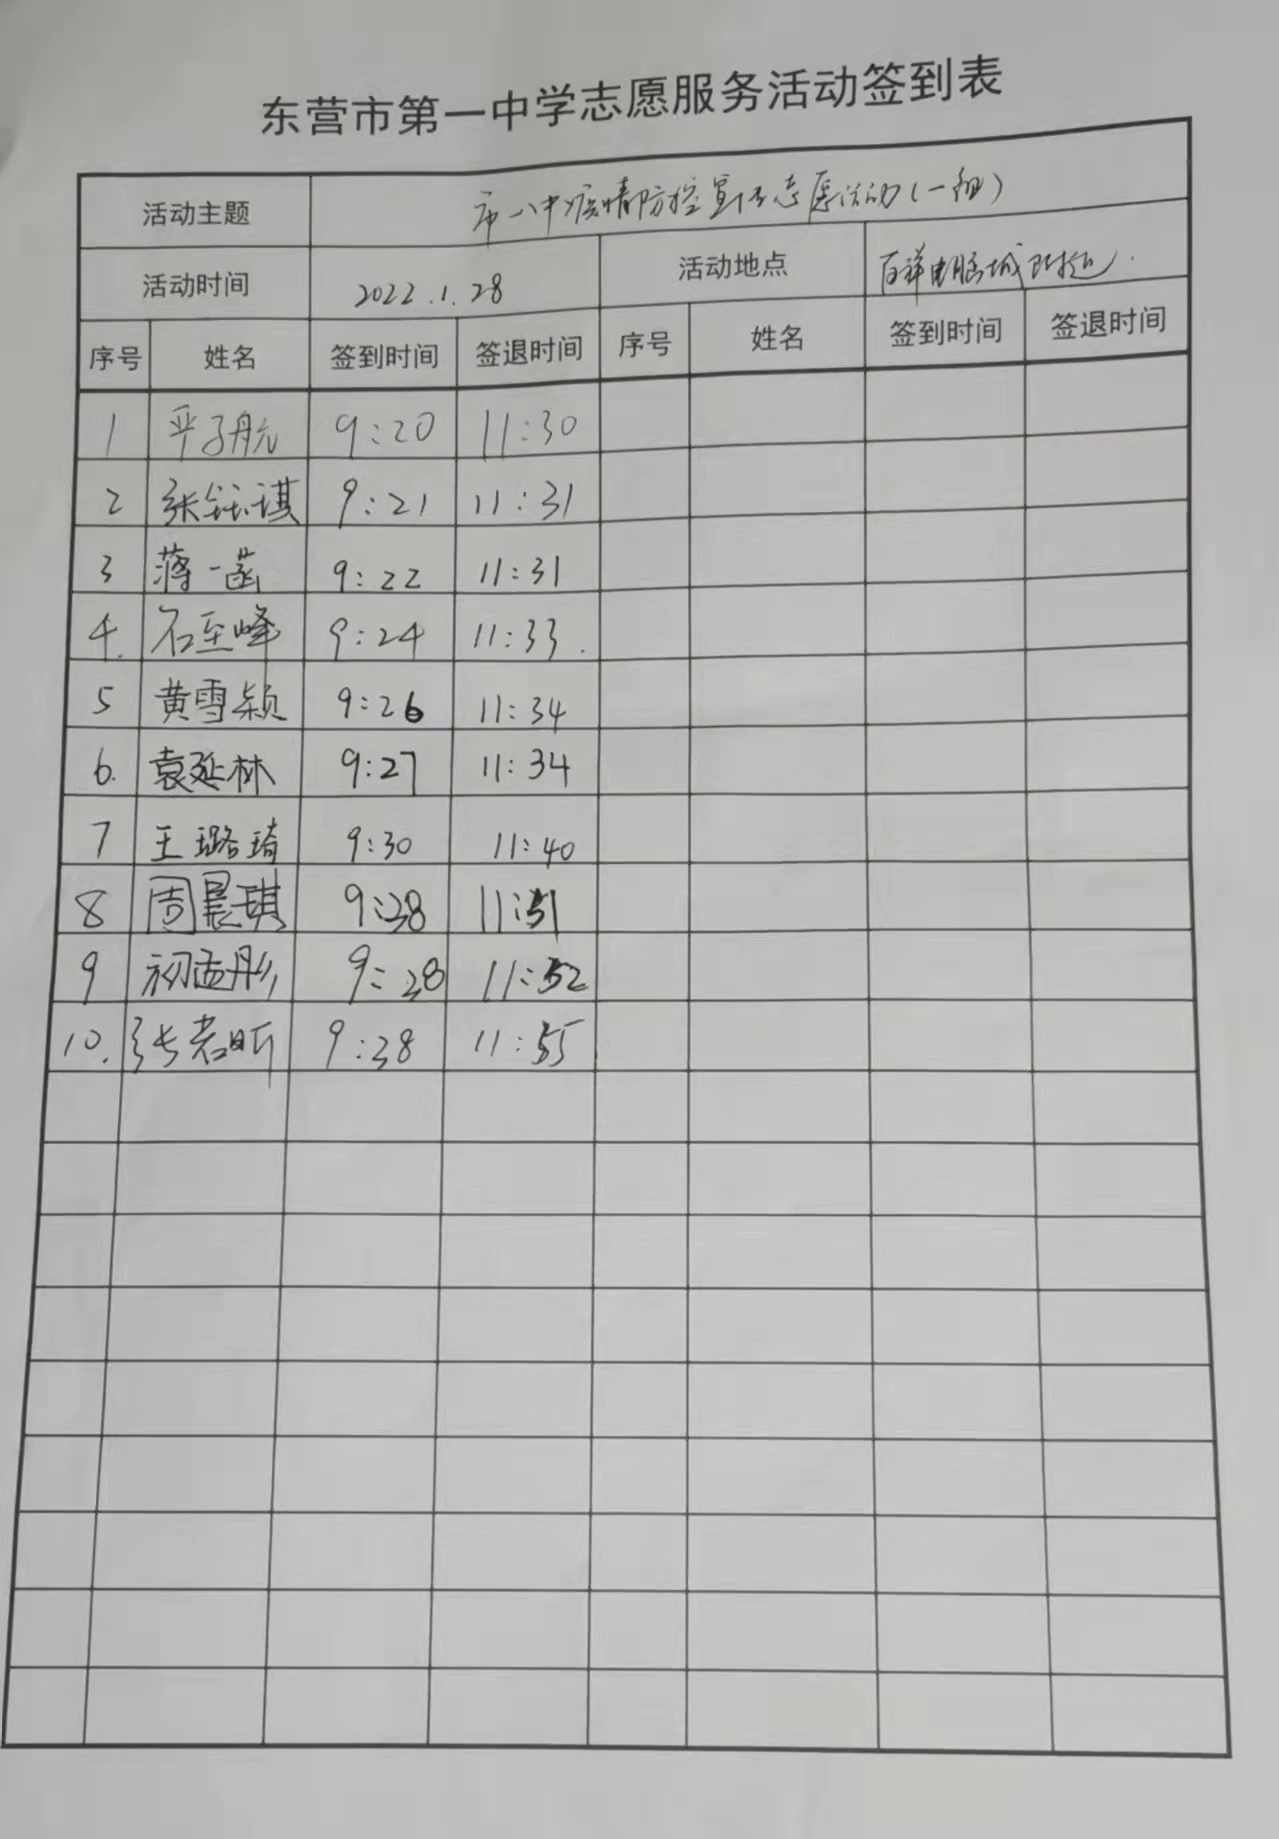 东营市第一中学志愿服务活动签到表
活动主题 市一中疫情防控宣传志愿活动(一组)
活动时间 2022.1.28 活动地点 百祥电脑城附近.
序号 姓名 签到时间 签退时间 序号 姓名 签到时间 签退时间
1 9:20 11:30
2 张钰琪 9:21 11:31
3 薄一菡 9:22 11:31
4. 石至峰 9:24 11:33.
5 黄雪颖 9:26 11:34
6. 袁延林 9:27 11:34
7 王璐琦 9:30 11:40
8 周晨琪 9:38 11:51
9 初孟彤 9:38 11:52
10. 张君昕 9:38 11:55